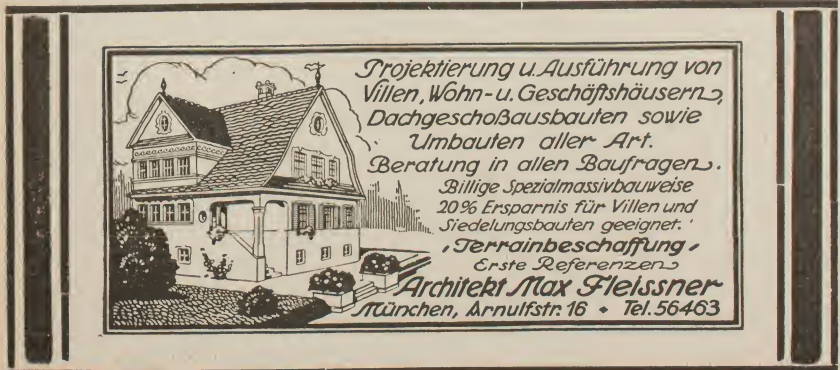 Projektierung u. Ausführung von
Villen, Wohn- u. Geschäftshäusern,
Dachgeschoßausbauten sowie
Umbauten aller Art.
Beratung in allen Baufragen.
Billige Spezialmassivbauweise
20% Ersparnis für Villen und
Siedelungsbauten geeignet.
Terrainbeschaffung
Erste Referenzen
Architekt Max Fleissner
München, Arnulfstr. 16 • Tel. 56463